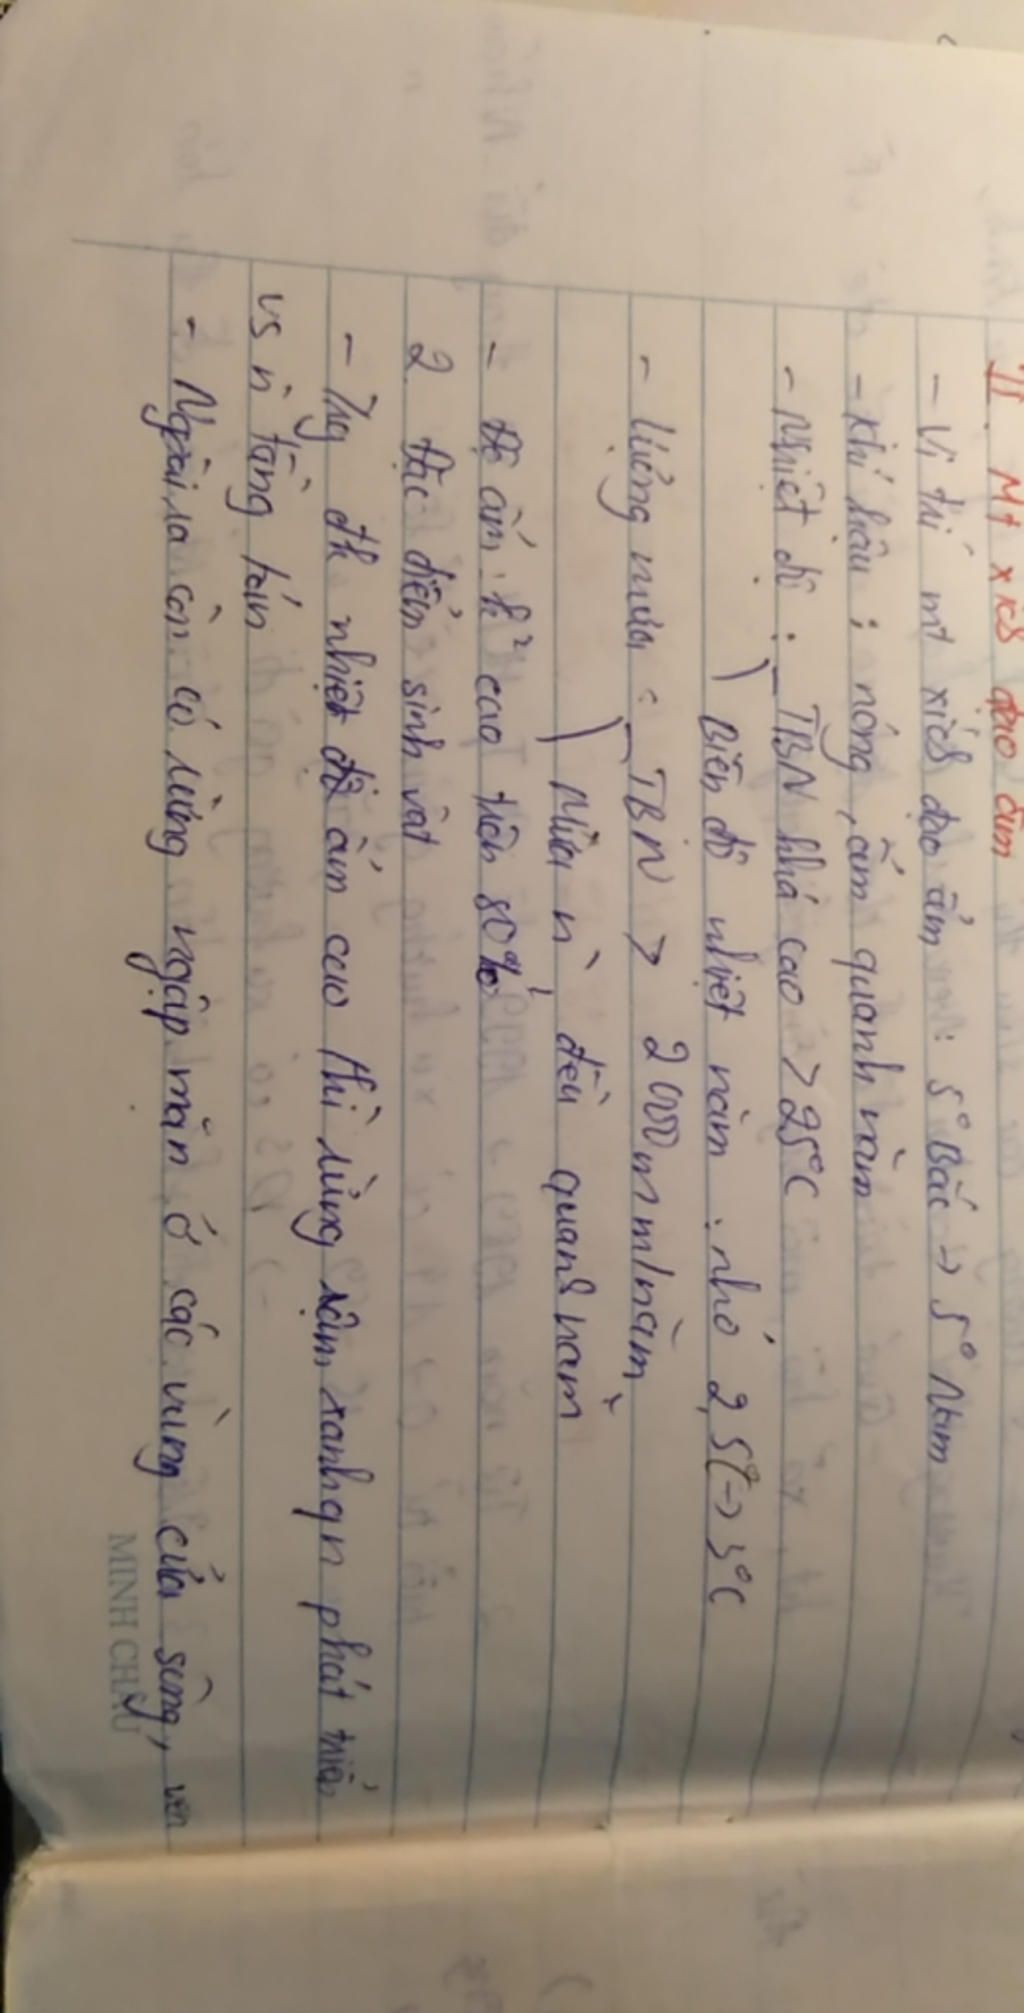 II. Mt xích đạo ẩm
- Vị trí mt xích đạo ẩm: 5° Bắc -> 5° Nam
- Khí hậu: nóng, ẩm quanh năm
- Nhiệt độ: TBN khá cao > 25°C
Biên độ nhiệt năm: nhỏ 2,5°C -> 3°C
- Lượng mưa: TBN > 2000mm/năm
Mưa n`, đều quanh năm
- Độ ẩm: k² cao trên 80%
2 Đặc điểm sinh vật
- Trg đk nhiệt độ ẩm cao thì rừng rậm xanh qn phát triển
vs n` tầng tán
- Ngoài ra còn có rừng ngập mặn ở các vùng cửa sông, ven
MINH CHÂU